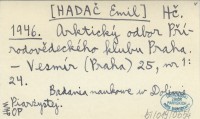 [HADAČ Emil] Hč.
1946. Arktický odbor Pří-
rodovědeckého klubu Praha.
- Vesmír (Praha) 25, nr 1:
24.
Badania naukowe w Dolinie